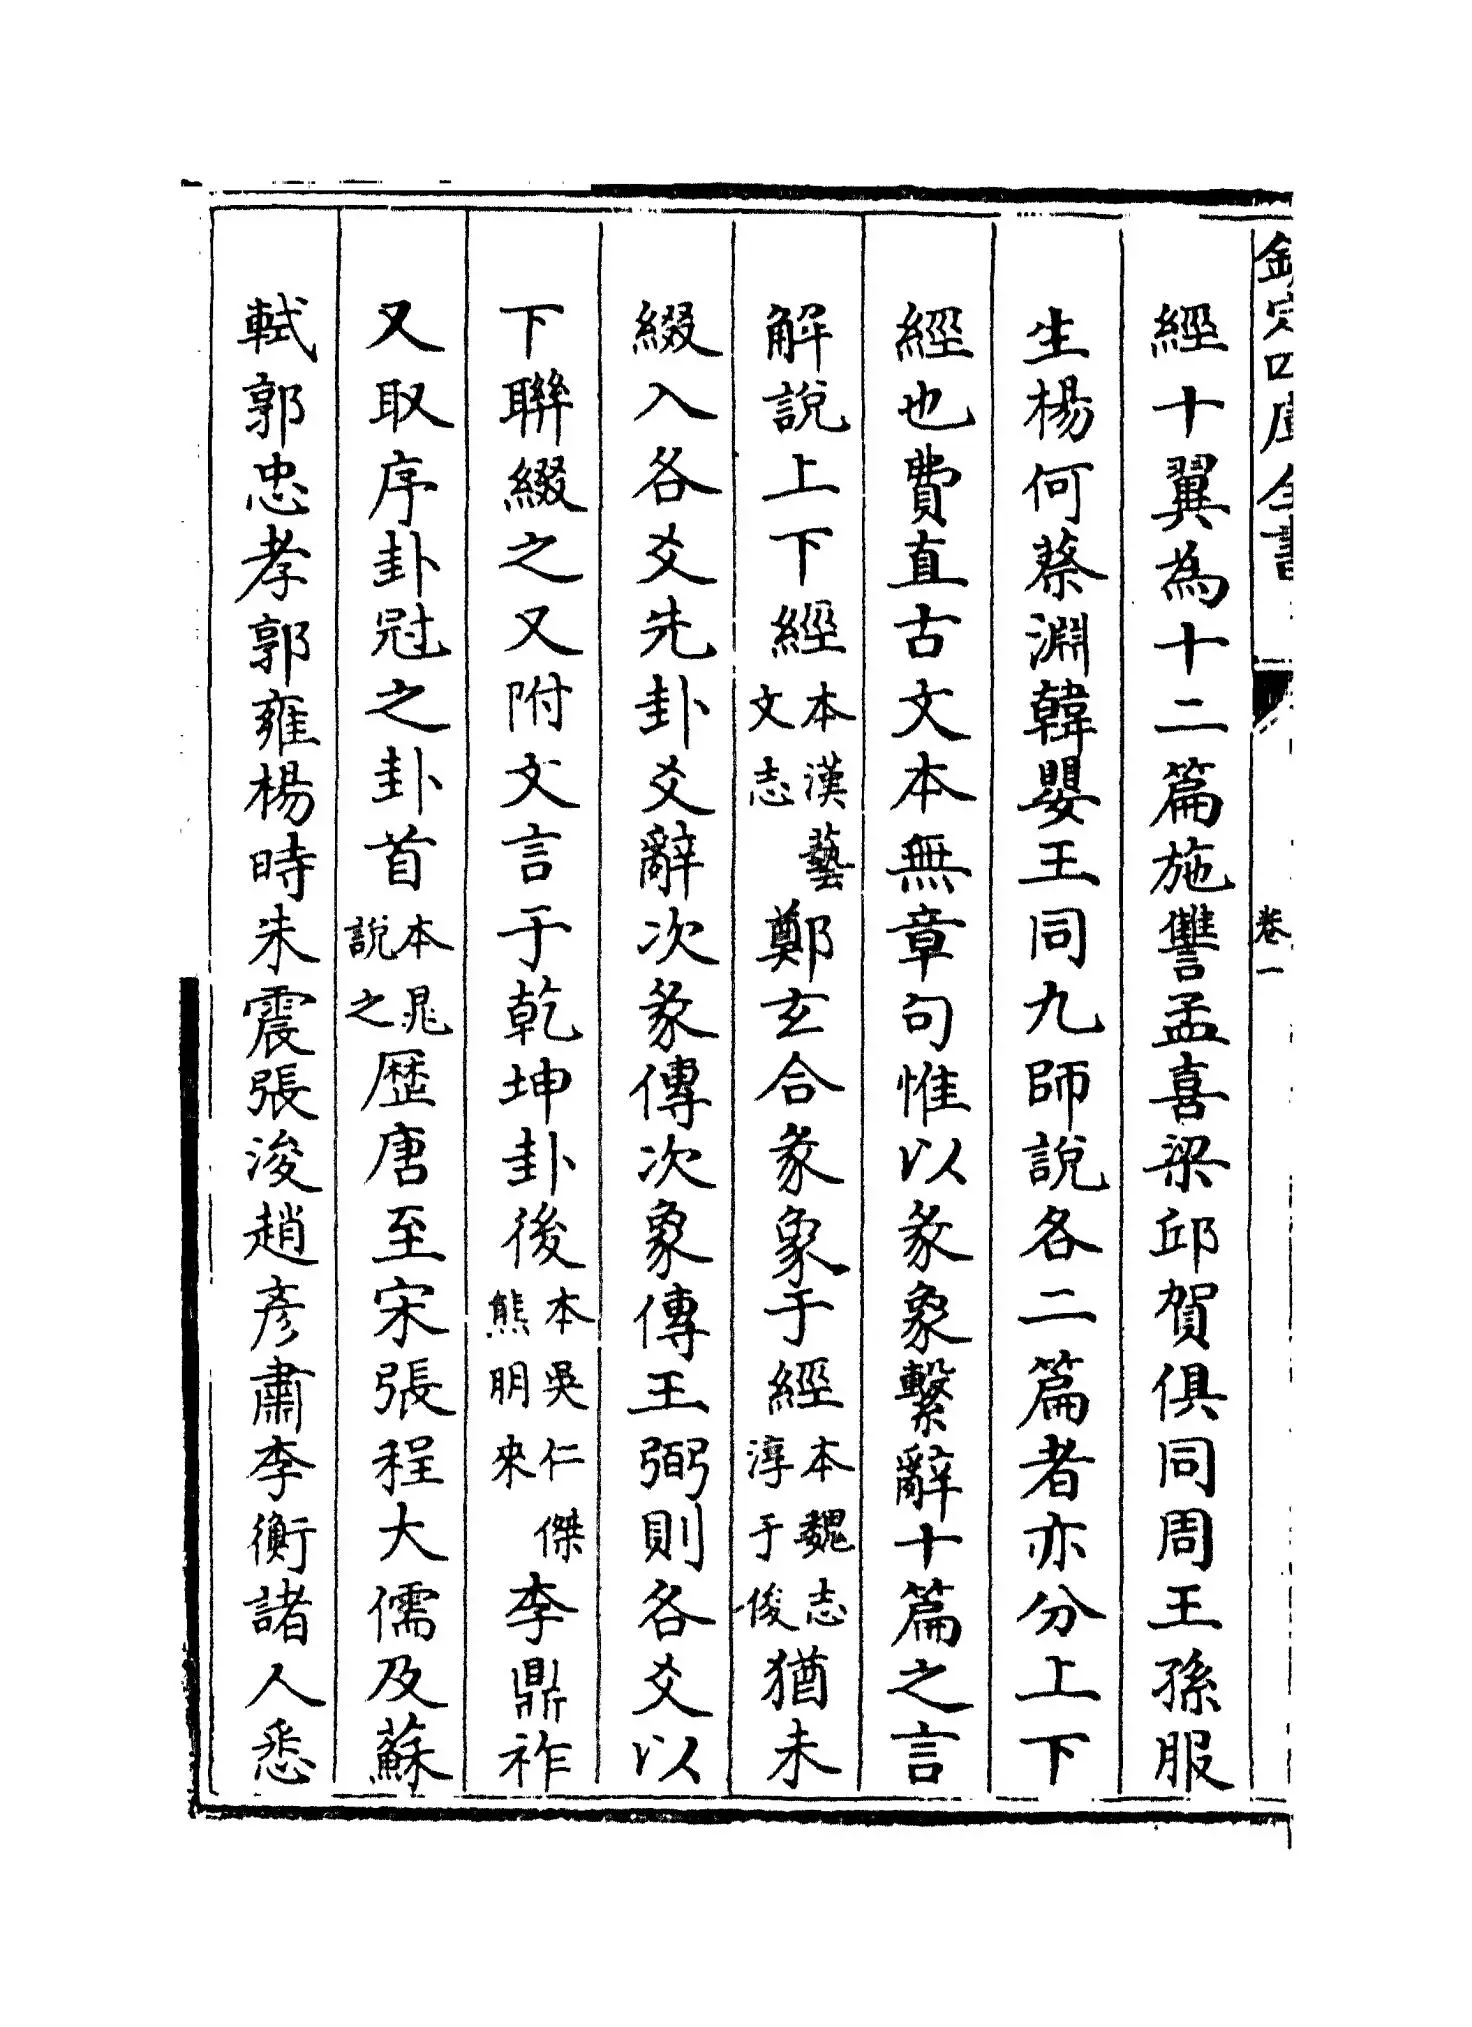 欽定四庫全書
卷一
經十翼為十二篇施讐孟喜梁邱賀俱同周王孫服
生楊何蔡淵韓嬰王同九師說各二篇者亦分上下
經也費直古文本無章句惟以彖象繫辭十篇之言
解說上下經本漢藝文志鄭玄合彖象于經本魏志淳于俊猶未
綴入各爻先卦爻辭次彖傳次象傳王弼則各爻以
下聯綴之又附文言于乾坤卦後本吳仁傑熊朋來李鼎祚
又取序卦冠之卦首本晁說之歷唐至宋張程大儒及蘇
軾郭忠孝郭雍楊時朱震張浚趙彥肅李衡諸人悉